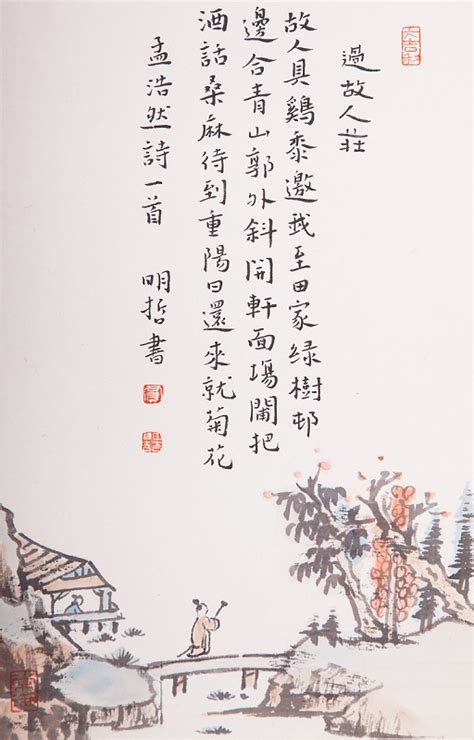 過故人莊
故人具鷄黍邀我至田家绿樹邨
邊合青山郭外斜開軒面場圃把
酒話桑麻待到重陽日還來就菊花
孟浩然詩一首 明哲書